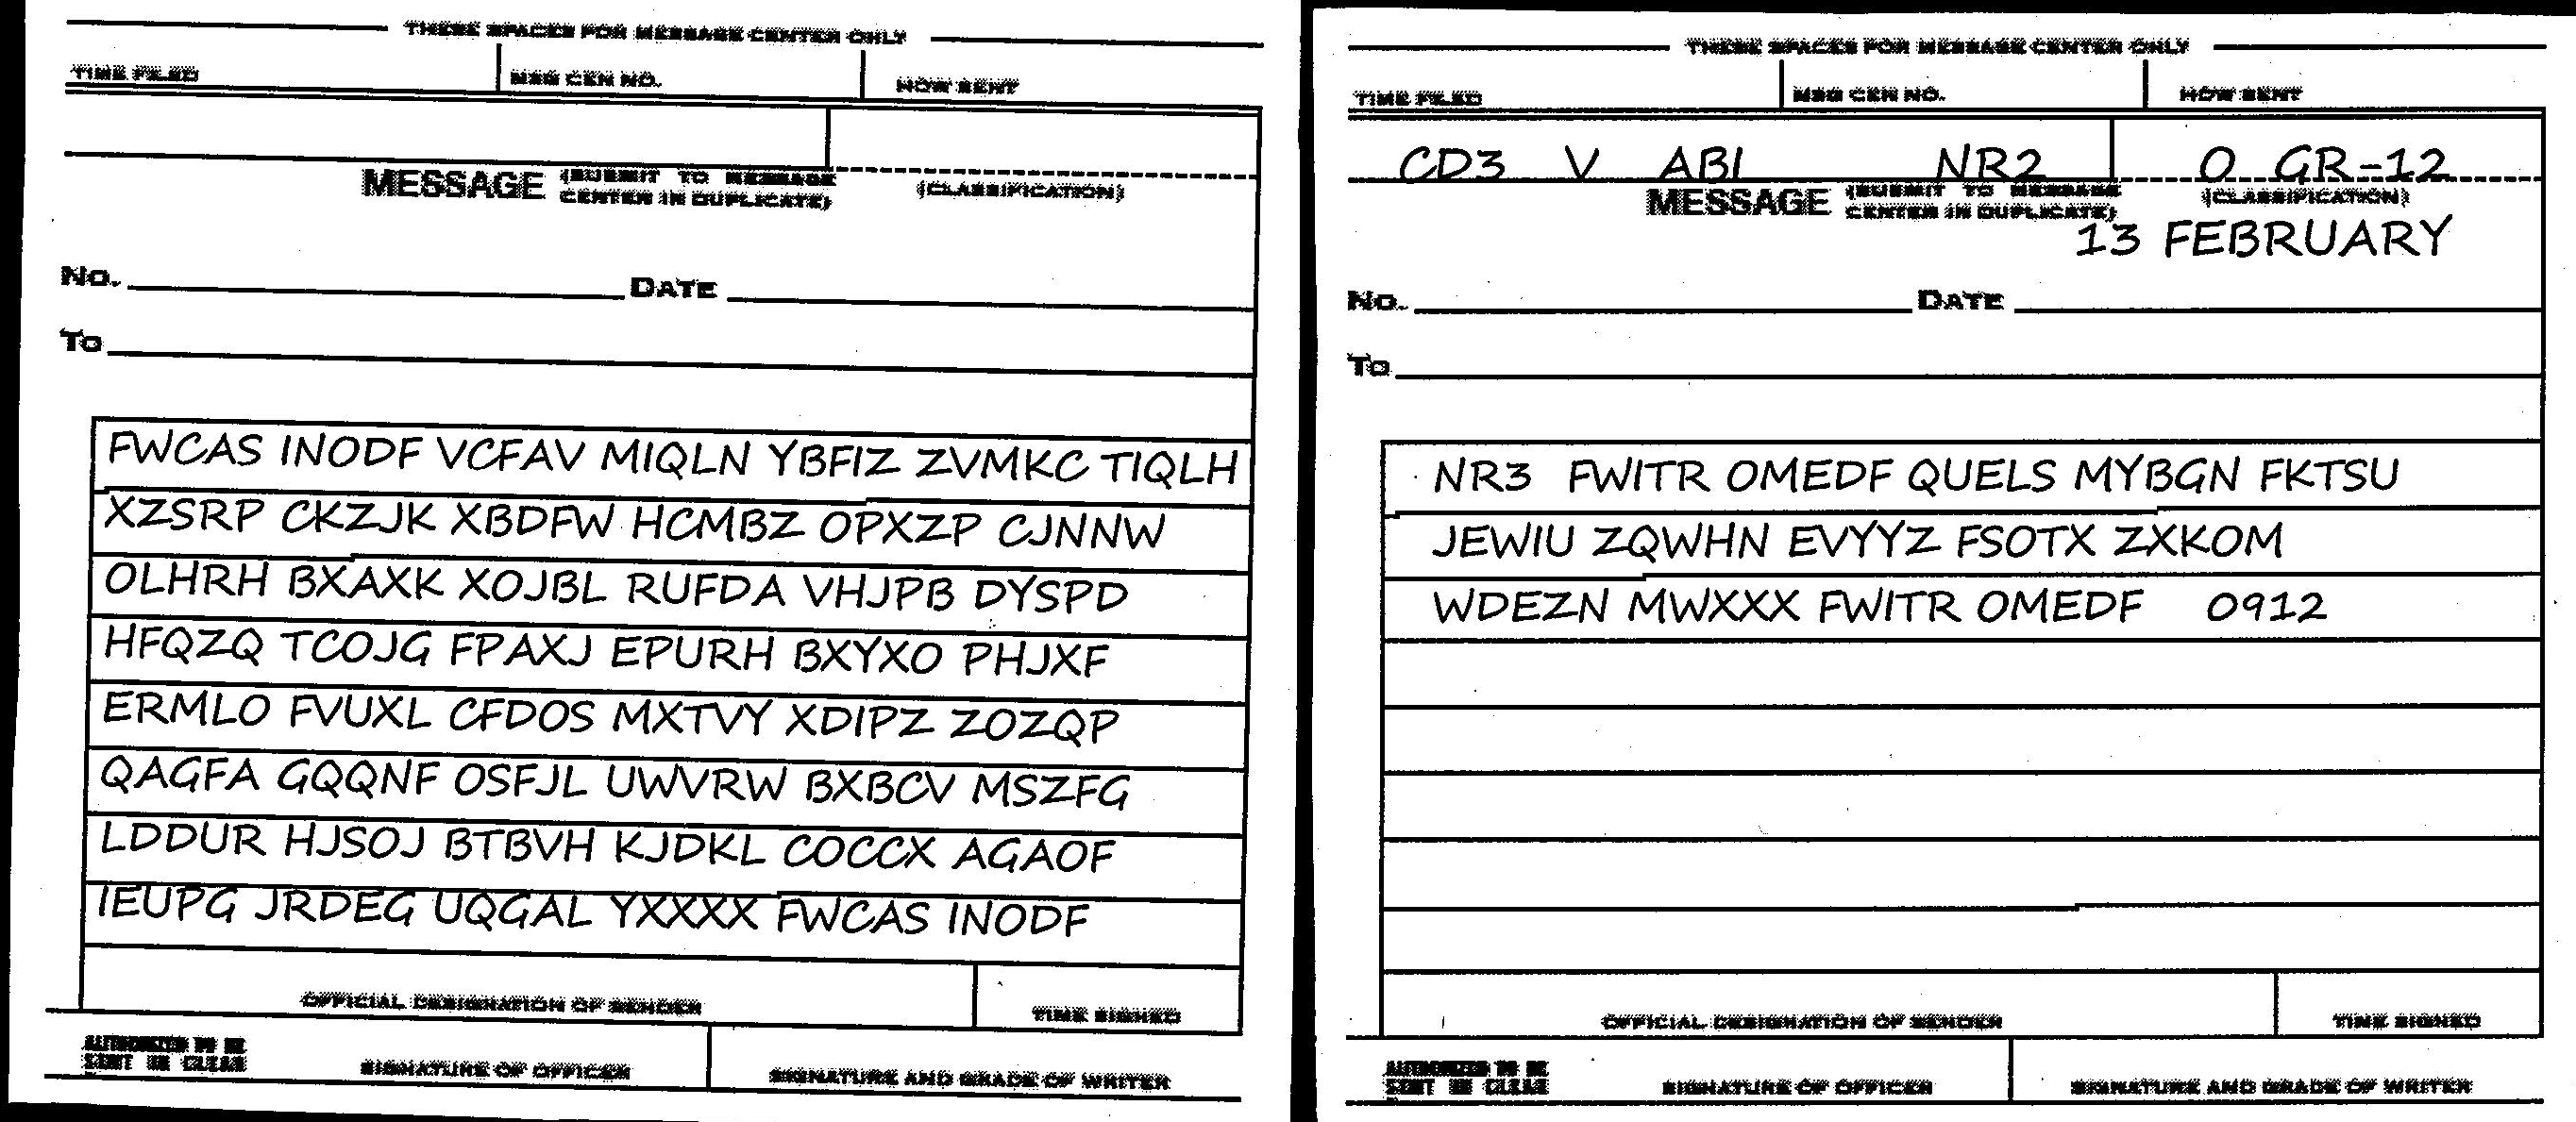 THESE SPACES FOR MESSAGE CENTER ONLY
TIME FILED MSG CEN NO. HOW SENT
MESSAGE (SUBMIT TO MESSAGE CENTER IN DUPLICATE) (CLASSIFICATION)
No. DATE
To
FWCAS INODF VCFAV MIQLN YBFIZ ZVMKC TIQLH
XZSRP CKZJK XBDFW HCMBZ OPXZP CJNNW
OLHRH BXAXK XOJBL RUFDA VHJPB DYSPD
HFQZQ TCOJG FPAXJ EPURH BXYXO PHJXF
ERMLO FVUXL CFDOS MXTVY XDIPZ ZOZQP
QAGFA GQQNF OSFJL UWVRW BXBCV MSZFG
LDDUR HJSOJ BTBVH KJDKL COCCX AGAOF
IEUPG JRDEG UQGAL YXXXX FWCAS INODF
OFFICIAL DESIGNATION OF SENDER TIME SIGNED
AUTHORIZED TO BE SENT IN CLEAR SIGNATURE OF OFFICER SIGNATURE AND GRADE OF WRITER
THESE SPACES FOR MESSAGE CENTER ONLY
TIME FILED MSG CEN NO. HOW SENT
CD3 V ABI NR2 O GR-12
MESSAGE (SUBMIT TO MESSAGE CENTER IN DUPLICATE) (CLASSIFICATION)
13 FEBRUARY
No. DATE
To
NR3 FWITR OMEDF QUELS MYBGN FKTSU
JEWIU ZQWHN EVYYZ FSOTX ZXKOM
WDEZN MWXXX FWITR OMEDF 0912
OFFICIAL DESIGNATION OF SENDER TIME SIGNED
AUTHORIZED TO BE SENT IN CLEAR SIGNATURE OF OFFICER SIGNATURE AND GRADE OF WRITER